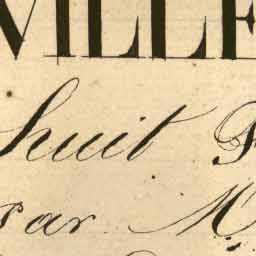 VILLE
huit F
par M